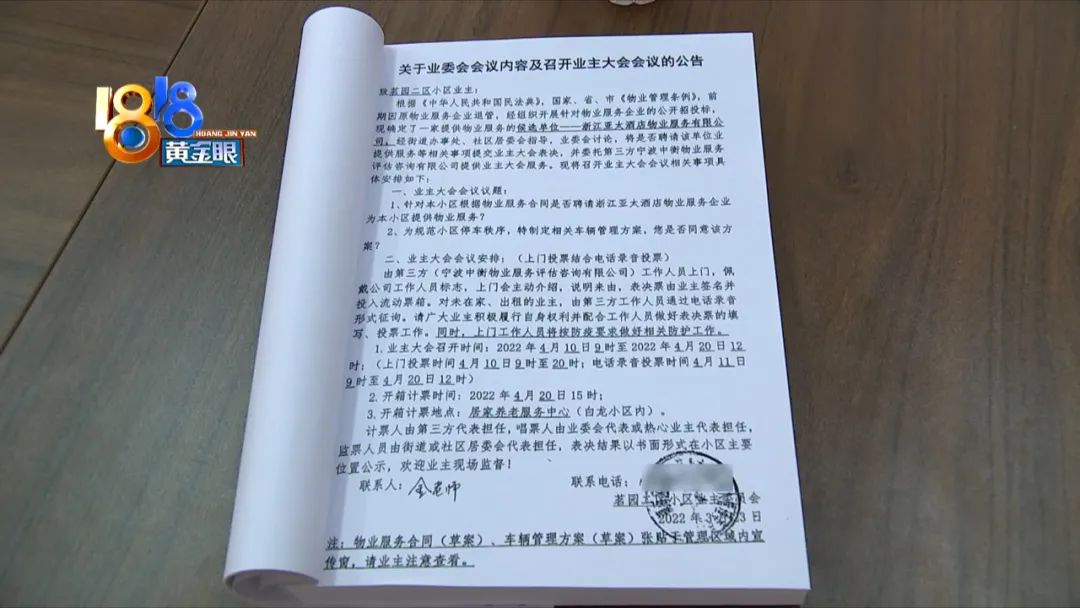 1818
HUANG JIN YAN
黄金眼
关于业委会会议内容及召开业主大会会议的公告
致茗园二区小区业主：
根据《中华人民共和国民法典》，国家、省、市《物业管理条例》，前
期因原物业服务企业退管，经组织开展针对物业服务企业的公开招投标，
现确定了一家提供物业服务的候选单位——浙江亚大酒店物业服务有限公
司，经街道办事处、社区居委会指导，业委会讨论，将是否聘请该单位业
提供服务等相关事项提交业主大会表决，并委托第三方宁波中衡物业服务
评估咨询有限公司提供业主大会服务。现将召开业主大会会议相关事项具
体安排如下：
一、业主大会会议议题：
1、针对本小区根据物业服务合同是否聘请浙江亚大酒店物业服务企业
为本小区提供物业服务？
2、为规范小区停车秩序，特制定相关车辆管理方案，您是否同意该方
案？
二、业主大会会议安排：（上门投票结合电话录音投票）
由第三方（宁波中衡物业服务评估咨询有限公司）工作人员上门，佩
戴公司工作人员标志，上门会主动介绍，说明来由，表决票由业主签名并
投入流动票箱。对未在家、出租的业主，由第三方工作人员通过电话录音
形式征询。请广大业主积极履行自身权利并配合工作人员做好表决票的填
写、投票工作。同时，上门工作人员将按防疫要求做好相关防护工作。
1.业主大会召开时间：2022年4月10日9时至2022年4月20日12
时；（上门投票时间4月10日9时至20时；电话录音投票时间4月11日
9时至4月20日12时）
2.开箱计票时间：2022年4月20日15时；
3.开箱计票地点：居家养老服务中心（白龙小区内）。
计票人由第三方代表担任，唱票人由业委会代表或热心业主代表担任，
监票人员由街道或社区居委会代表担任，表决结果以书面形式在小区主要
位置公示，欢迎业主现场监督！
联系人：金老师 联系电话：
茗园二区小区业主委员会
2022年3月23日
注：物业服务合同（草案）、车辆管理方案（草案）张贴于管理区域内宣
传窗，请业主注意查看。